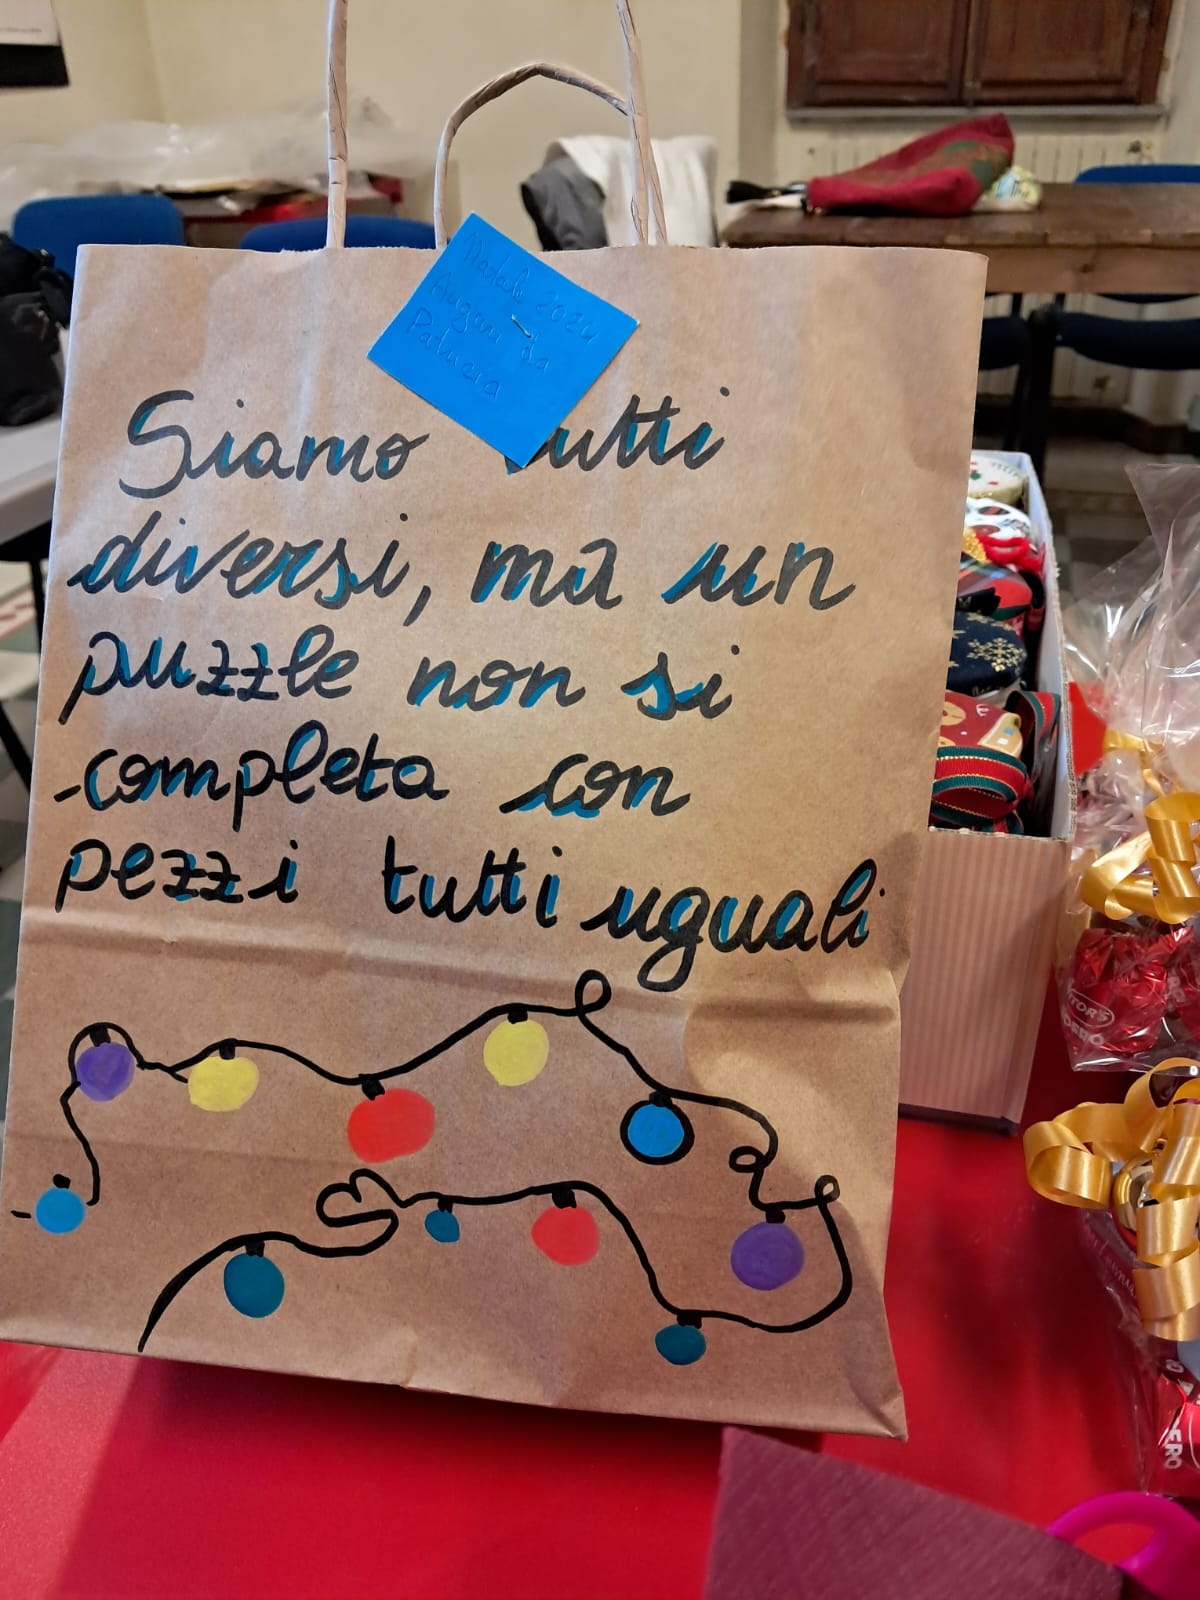 Natale 2024
Auguri da
Patrizia
Siamo tutti
diversi, ma un
puzzle non si
completa con
pezzi tutti uguali